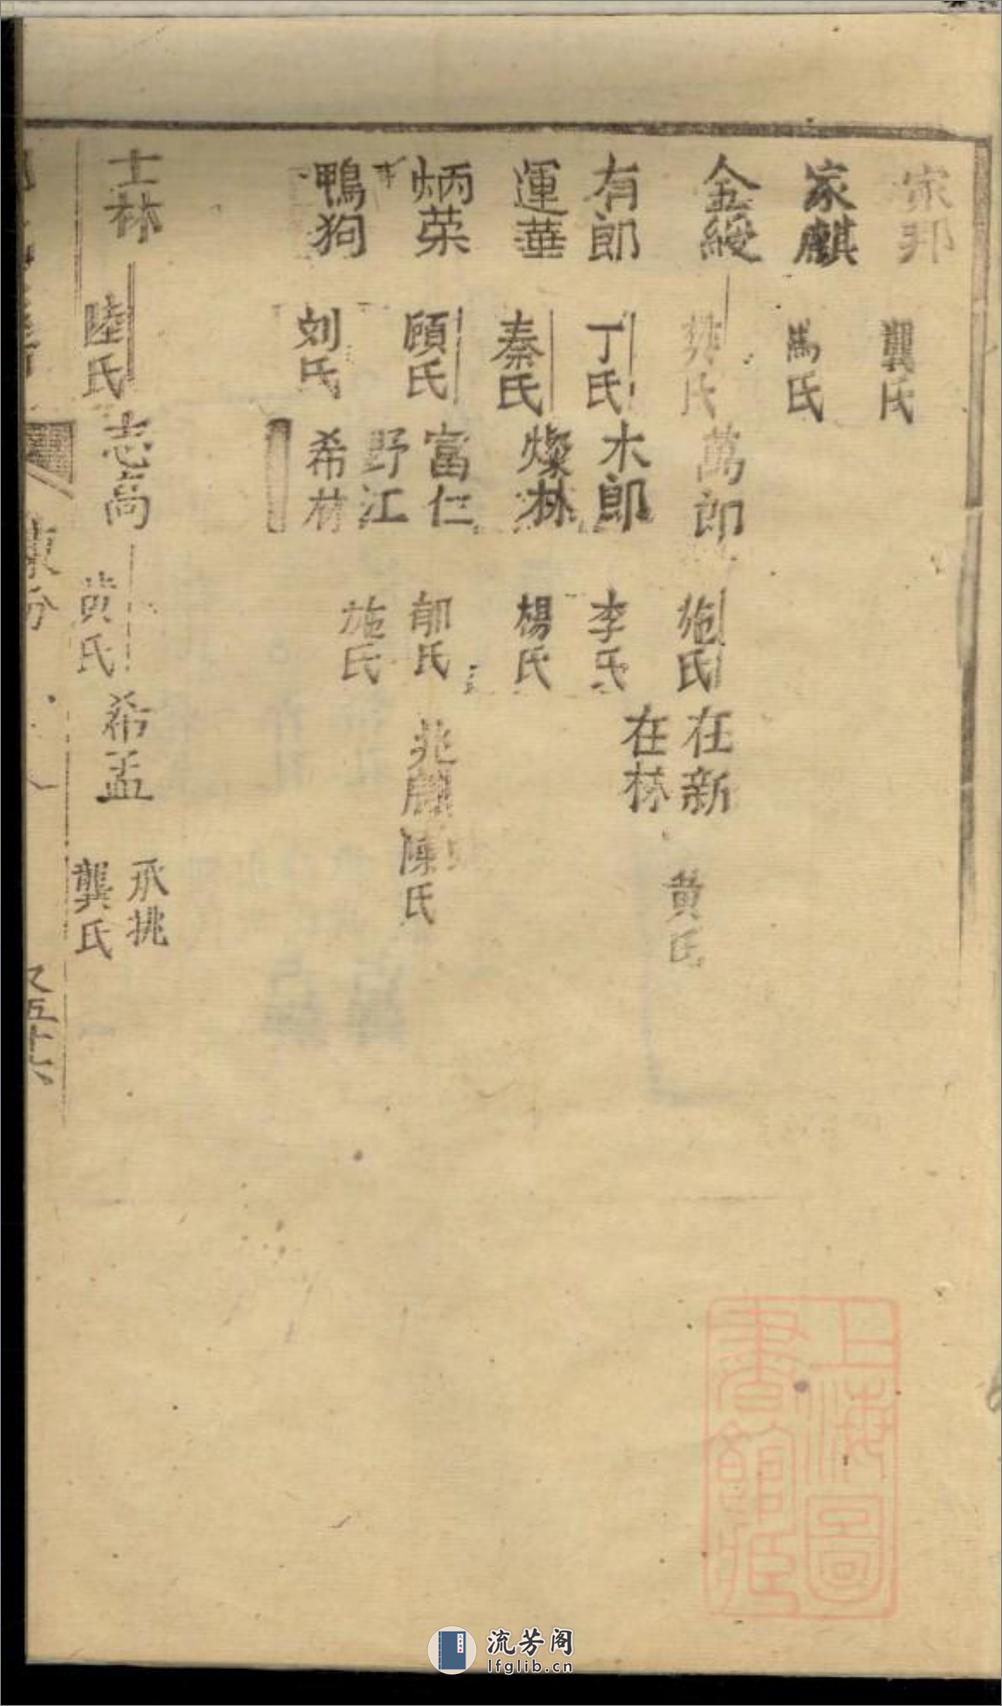 家邦 龔氏
家麒 馬氏
金綬 樊氏 萬郎 施氏 在新 黄氏
在林
有郎 丁氏 木郎 李氏
運華 秦氏 燦林 楊氏
炳荣 顧氏 富仁 郁氏 兆麟 陳氏
野江 施氏
鴨狗 刘氏 希林
士林 陸氏 志高 黄氏 希孟 承祧 龔氏
東分
又五十六
上海圖
書館藏
流芳阁
lfglib.cn